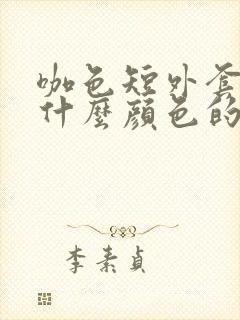 咖色短外套
什麼顏色的
李素貞